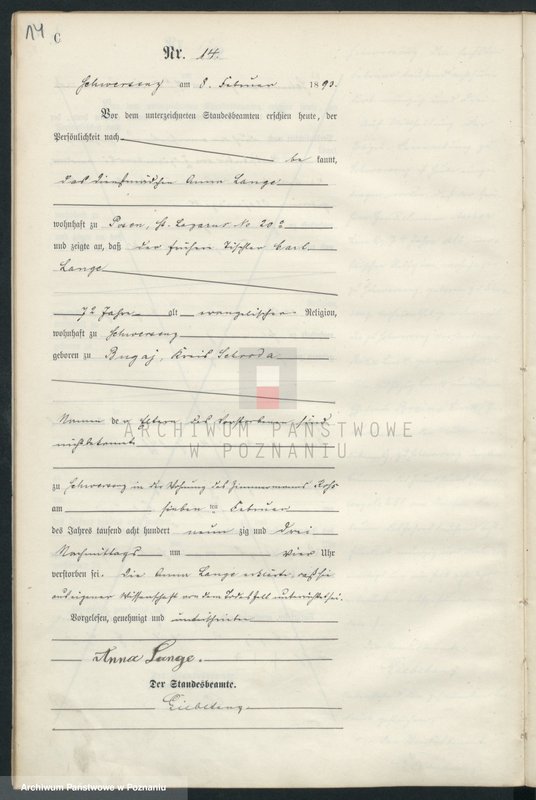 14
C
Nr. 14.
Schwersenz am 8. Februar 1893.
Vor dem unterzeichneten Standesbeamten erschien heute, der
Persönlichkeit nach
be kannt,
das Dienstmädchen Anna Lange
wohnhaft zu Posen, St. Lazarus No 20
und zeigte an, daß der frühere Tischler Carl
Lange
72 Jahre alt evangelischer Religion,
wohnhaft zu Schwersenz
geboren zu Bugaj, Kreis Schroda
Namen der Eltern des Verstorbenen sind
nicht bekannt
zu Schwersenz in der Wohnung des Zimmermanns
am sieben ten Februar
des Jahres tausend acht hundert neun zig und drei
Nachmittags um vier Uhr
verstorben sei. Die Anna Lange erklärte, daß sie
aus eigener Wissenschaft von dem Todesfall unterrichtet sei.
Vorgelesen, genehmigt und unterschrieben
Anna Lange.
Der Standesbeamte.
ARCHIWUM PAŃSTWOWE
W POZNANIU
Archiwum Państwowe w Poznaniu